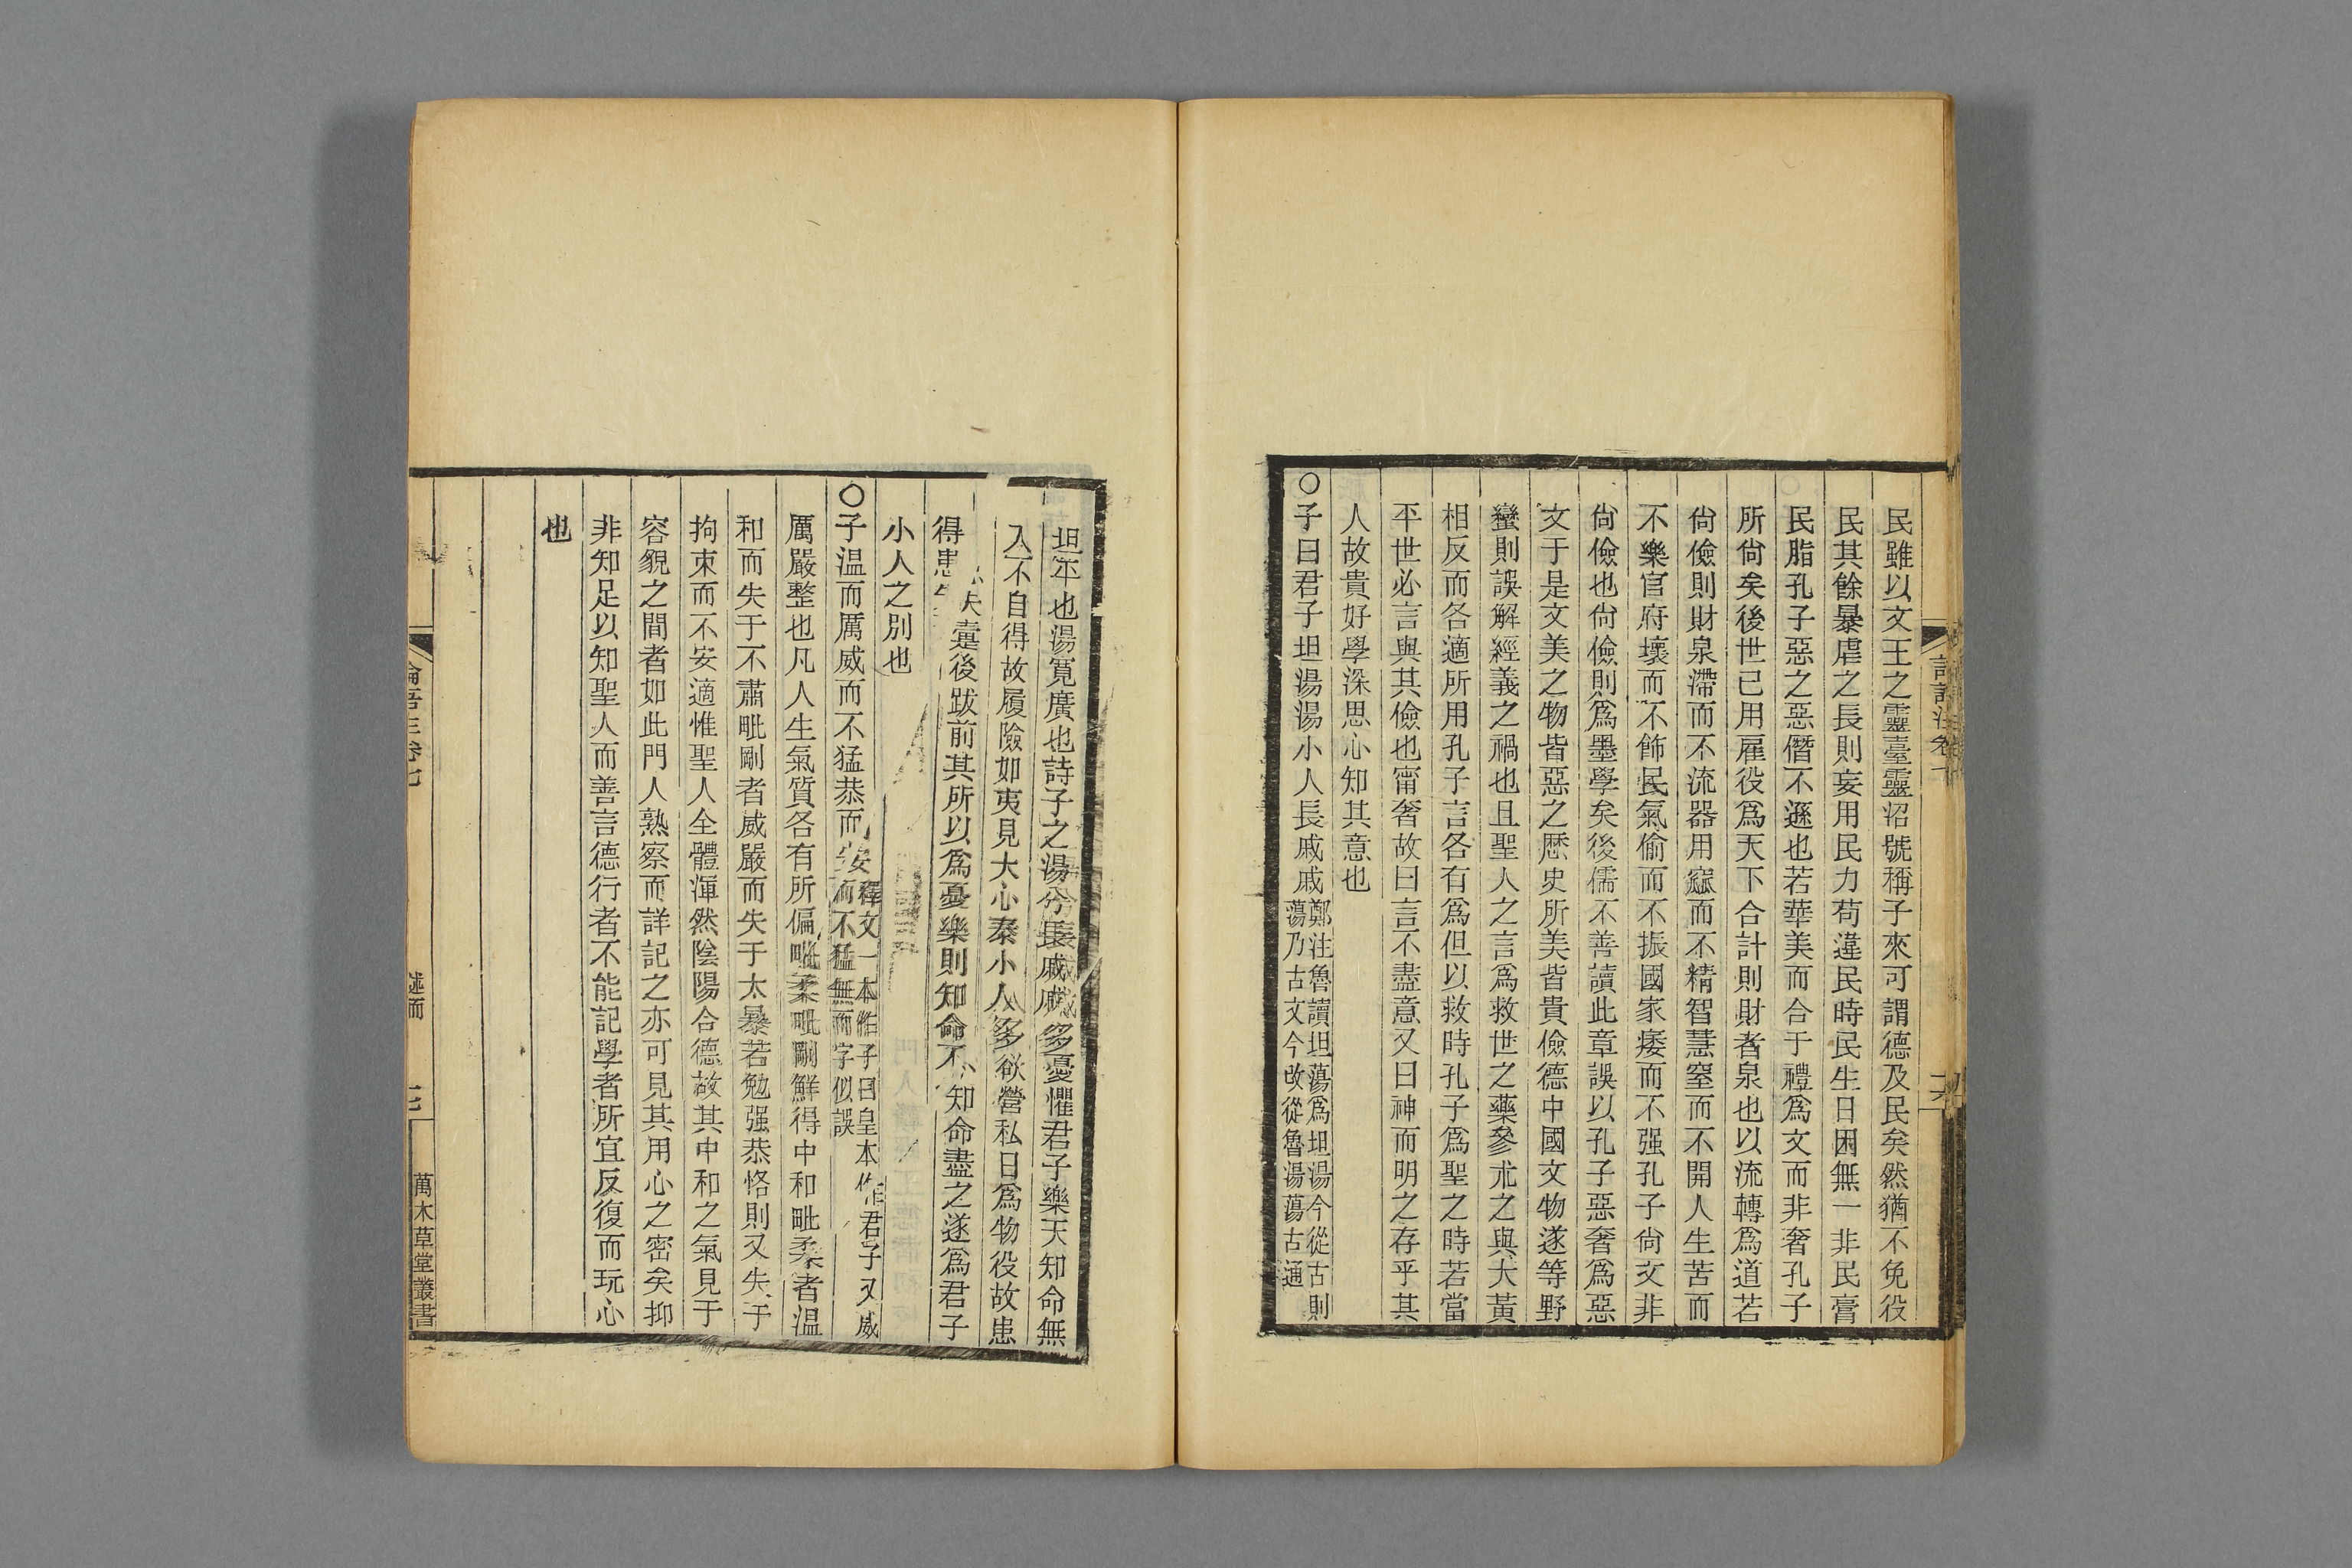 民雖以文王之靈臺靈沼號稱子來可謂德及民矣然猶不免役
民其餘暴虐之長則妄用民力苟違民時民生日困無一非民膏
民脂孔子惡之惡僭不遜也若華美而合于禮爲文而非奢孔子
所尙矣後世已用雇役爲天下合計則財者泉也以流轉爲道若
尙儉則財泉滯而不流器用窳而不精智慧窒而不開人生苦而
不樂官府壞而不飾民氣偷而不振國家痿而不强孔子尙文非
尙儉也尙儉則爲墨學矣後儒不善讀此章誤以孔子惡奢爲惡
文于是文美之物皆惡之歷史所美皆貴儉德中國文物遂等野
蠻則誤解經義之禍也且聖人之言爲救世之藥參朮之與大黃
相反而各適所用孔子言各有爲但以救時孔子爲聖之時若當
平世必言與其儉也甯奢故曰言不盡意又曰神而明之存乎其
人故貴好學深思心知其意也
○子曰君子坦湯湯小人長戚戚
鄭注魯讀坦蕩爲坦湯今從古則
蕩乃古文今改從魯湯蕩古通
坦平也湯寬廣也詩子之湯兮長戚戚多憂懼君子樂天知命無
入不自得故履險如夷見大心泰小人多欲營私日爲物役故患
得患失疐後跋前其所以爲憂樂則知命不知命盡之遂爲君子
小人之別也
○子溫而厲威而不猛恭而安
釋文一本作子曰皇本作君子又威
而不猛無而字似誤
厲嚴整也凡人生氣質各有所偏毗柔毗剛鮮得中和毗柔者溫
和而失于不肅毗剛者威嚴而失于太暴若勉强恭恪則又失于
拘束而不安適惟聖人全體渾然陰陽合德故其中和之氣見于
容貌之間者如此門人熟察而詳記之亦可見其用心之密矣抑
非知足以知聖人而善言德行者不能記學者所宜反復而玩心
也
萬木草堂叢書